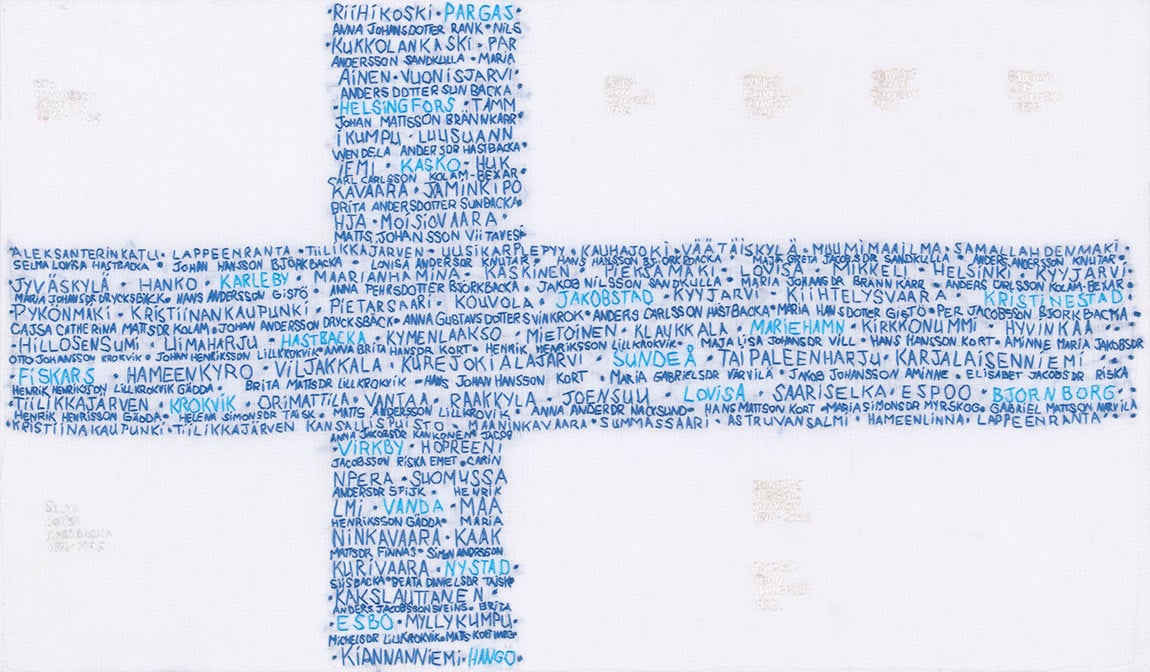 •RIIHIKOSKI•PARGAS•
ANNA JOHANSDOTTER RANK•NILS
•KUKKOLANKASKI•PAR
ANDERSSON SANDKULLA•MARIA
AINEN•VUONISJARVI•
ANDERS DOTTER SUNBACKA•
•HELSINGFORS•TAMM
JOHAN MATTSSON BRÄNNKÄRR•
IKUMPU•LUUSUANN
WENDELA ANDERSDR HASTBACKA•
IEMI•KASKÖ•HUK
CARL CARLSSON KOLAM-BEXAR•
KAVAARA•JAMINKIPO
BRITA ANDERSDOTTER SUNBACKA•
HJA•MOISIOVAARA•
MATTS JOHANSSON VIITAVESI•
ALEKSANTERINKATU•LAPPEENRANTA•TIILIKKAJÄRVEN•UUSIKAARLEPYY•KAUHAJOKI•VÄÄTÄISKYLÄ•MUUMIMAAILMA•SAMALLAHDENMAKI•
SELMA LOVISA HASTBACKA•JOHAN HANSSON BJÖRKBACKA•LOVISA ANDERSDR KNUTAR•HANS HANSSON BJÖRKBACKA•MAJA GRETA JACOBSDR SANDKULLA•ANDERS ANDERSSON KNUTAR•
JYVÄSKYLÄ•HANKO KARLEBY•MAARIANHAMINA•KASKINEN•PIEKSAMAKI•LOVISA•MIKKELI•HELSINKI•KYYJARVI•
MARIA JOHANSDR DRYCKSBÄCK•HANS ANDERSSON GISTÖ•ANNA PEHRSDOTTER BJÖRKBACKA•JAKOB NILSSON SANDKULLA•MARIA JOHANSDR BRÄNNKÄRR•ANDERS CARLSSON KOLAM-BEXAR•
PYKÖNMÄKI•KRISTIINANKAUPUNKI•PIETARSAARI•KOUVOLA•JAKOBSTAD•KYYJARVI•KIIHTELYSVAARA•KRISTINESTAD•
CAJSA CATHERINA MATTSDR KOLAM•JOHAN ANDERSSON DRYCKSBÄCK•ANNA GUSTAVSDOTTER SVINKROK•ANDERS CARLSSON HASTBACKA•MARIA HANSDOTTER GISTÖ•PER JACOBSSON BJÖRKBACKA•
•HILLOSENSUMI•UIMAHARJU•HASTBACKA•KYMENLAAKSO•MIETOINEN•KLAUKKALA•MARIEHAMN•KIRKKONUMMI•HYVINKÄÄ•
OTTO JOHANSSON KROKVIK•JOHAN HENRIKSSON LILLKROKVIK•ANNA BRITA HANSDR KORT•HENRIK HENRIKSSON LILLKROKVIK•MAJA LISA JOHANSDR VILL•HANS HANSSON KORT•AMINNE MARIA JAKOBSDR
FISKARS•HAMEENKYRO•VILJAKKALA•KUREJOKI ALAJÄRVI•SUNDEÅ•TAIPALEENHARJU•KARJALAISENNIEMI•
HENRIK HENRIKSSON LILLKROKVIK GÄDDA•BRITA MATTSDR LILLKROKVIK•HANS JOHAN HANSSON KORT•MARIA GABRIELSDR VÄRVILÄ•JAKOB JOHANSSON AMINNE•ELISABET JACOBSDR RISKA
TIILIKKAJARVEN•KROKVIK•ORIMATTILA•VANTAA•RAAKKYLA•JOENSUU•LOVISA•SAARISELKA•ESPOO•BJÖRNBORG•
HENRIK HENRIKSSON GÄDDA•HELENA SIMONSDR TAISK•MATTS ANDERSSON LILLKROVIK•ANNA ANDERDR NACKSUND•HANS MATTSON KORT•MARIA SIMONSDR MYRSKOG•GABRIEL MATTSON
•KRISTIINAKAUPUNKI•TIILIKKAJÄRVEN KANSALLISPUISTO•MAANINKAVAARA•SUMMASSAARI•ASTRUVANSALMI•HAMEENLINNA•LAPPEENRANTA•
ANNA JACOBSDR KANKONEN•JACOB
•VIRKBY•HOPREENI
JACOBSSON RISKA EMET•CARIN
NPERA•SUOMUSSA
ANDERSDR SPIJK•HENRIK
LMI•VANDA•MAA
HENRIKSSON GÄDDA•MARIA
NINKAVAARA•KAAK
MATTSDR FINNÄS•SIMON ANDERSSON
KURIVAARA•NYSTAD•
SIISBACKA•BEATA DANIELSDR TAISK•
•KAKSLAUTTANEN•
ANDERS JACOBSSON SVEINS•BRITA
•ESBO•MYLLYKUMPU•
MICHELSDR LILLKROKVIK•MATTS
•KIANNANNIEMI•HANGO•